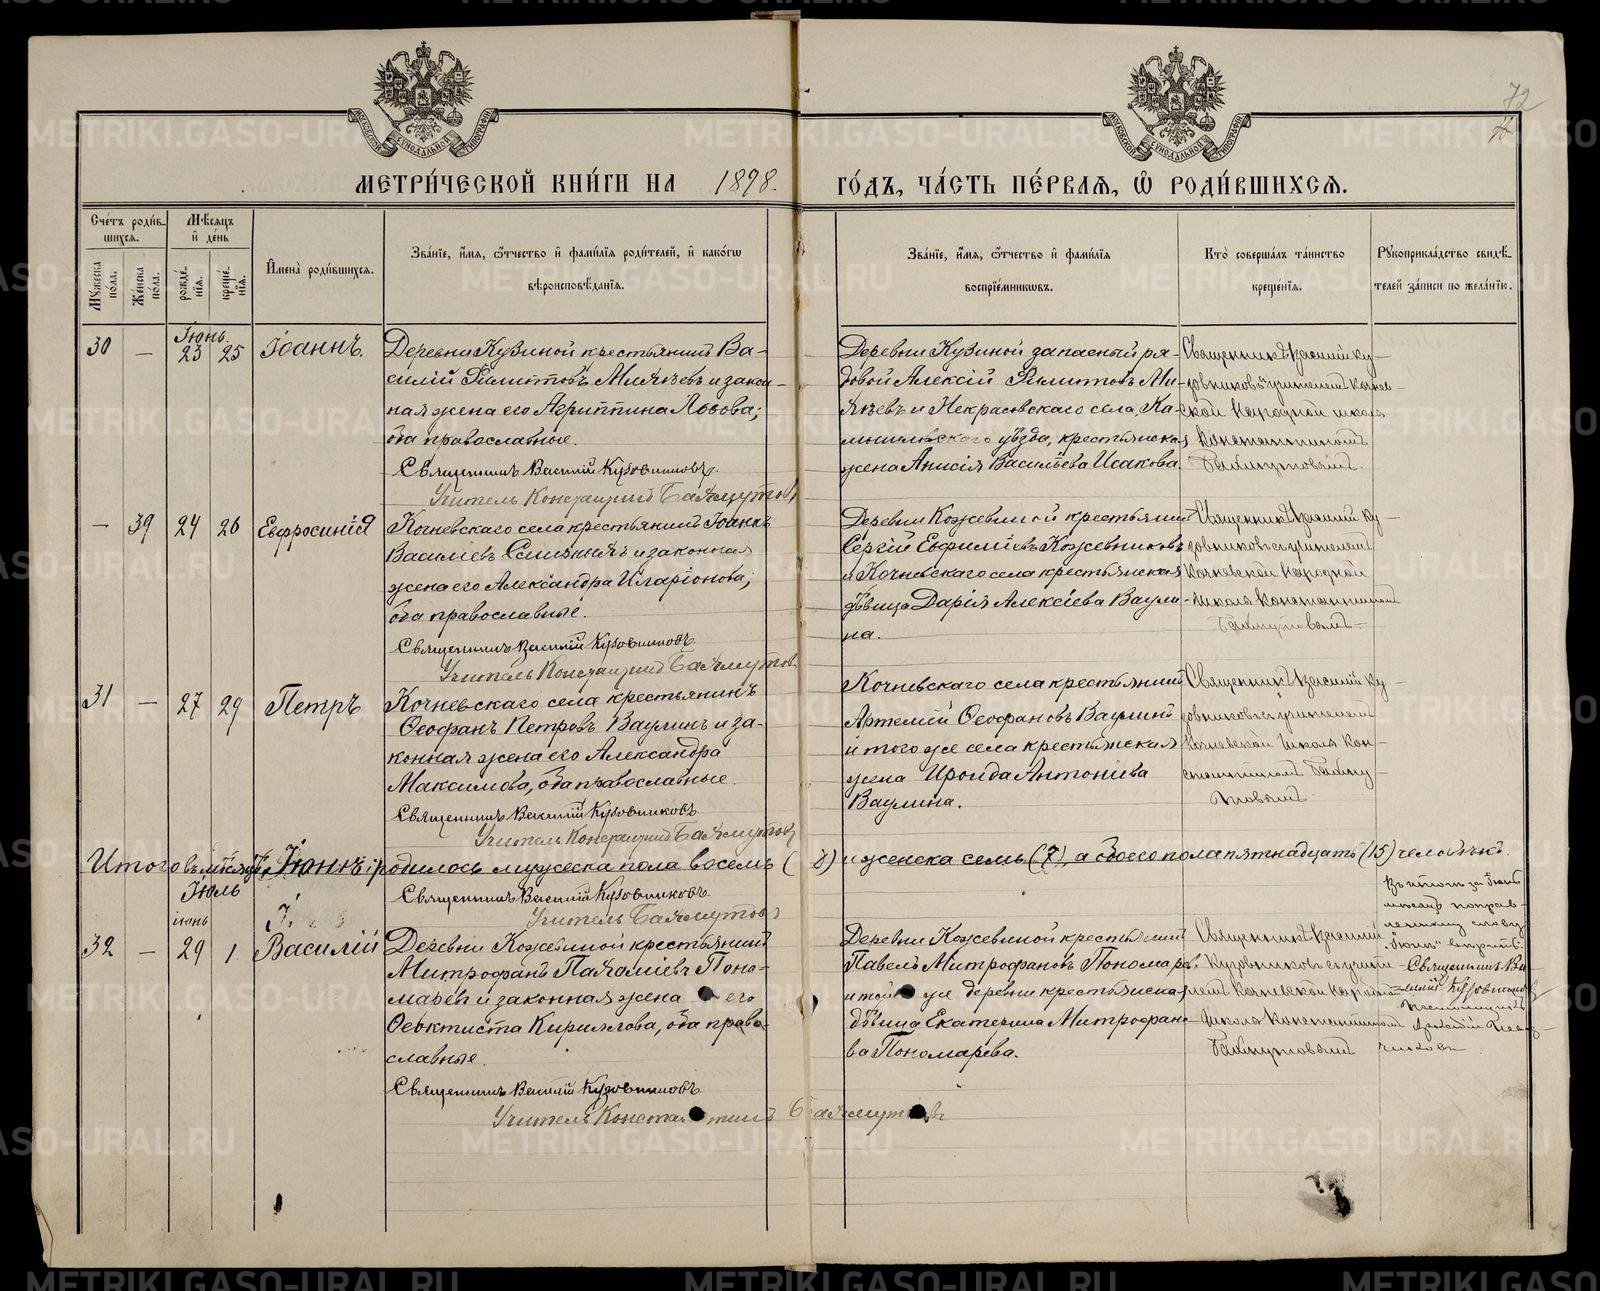 72
МЕТРИ́ЧЕСКОЙ КНИ́ГИ НА 1898. ГО́ДЪ, ЧА́СТЬ ПЕ́РВАЯ, Ѡ РОДИ́ВШИХСЯ.
Сче́тъ роди́в-
шихся.
Мѣ́сяцъ
и де́нь
Мꙋ́жеска
по́ла.
Же́нска
по́ла.
рожде́-
нія.
креще́-
нія.
Имена̀ роди́вшихся.
Зва́ніе, и́мя, ѻ́тчество и фами́лія роди́телей, и како́гѡ
вѣроисповѣ́данія.
Зва́ніе, и́мя, ѻ́тчество и фами́лія
воспріе́мникѡвъ.
Кто̀ соверша́лъ та́инство
креще́нія.
Рꙋкоприкла́дство свидѣ́-
телей за́писи по жела́нію.
Іюнь
30 — 23 25 Іоаннъ.
Деревни Кузиной крестьянинъ Ва-
силій Филиповъ и закон-
ная жена его Агриппина Львова;
оба православные.
Священникъ Василій Кузовниковъ.
Учитель Константинъ Бахмутовъ
Деревни Кузиной запасный ря-
довой Алексій Филиповъ
и Некрасовскаго села, Ка-
мышловскаго уѣзда, крестьянская
жена Анисія Васильева Исакова.
Священникъ Василій Ку-
зовниковъ съ учителемъ Кочнев-
ской народной школы
Константиномъ
Бахмутовымъ.
— 39 24 26 Евфросинія
Кочневскаго села крестьянинъ Іоаннъ
Васильевъ и законная
жена его Александра Иларіонова;
оба православные.
Священникъ Василій Кузовниковъ.
Учитель Константинъ Бахмутовъ
Деревни Кожевиной крестьянинъ
Сергій Евфиміевъ Кожевниковъ
и Кочневскаго села крестьянская
дѣвица Дарія Алексіева Ваули-
на.
Священникъ Василій Ку-
зовниковъ съ учителемъ
Кочневской народной
школы Константиномъ
Бахмутовымъ.
31 — 27 29 Петръ
Кочневскаго села крестьянинъ
Ѳеофанъ Петровъ Ваулинъ и за-
конная жена его Александра
Максимова, оба православные.
Священникъ Василій Кузовниковъ.
Учитель Константинъ Бахмутовъ
Кочневскаго села крестьянинъ
Артемій Ѳеофановъ Ваулинъ
и того же села крестьянская
жена Ироида Антоніева
Ваулина.
Священникъ Василій Ку-
зовниковъ съ учителемъ
Кочневской школы Кон-
стантиномъ Бахму-
товымъ.
Итого въ мѣсяцѣ Іюнѣ родилось мужеска пола восемь (8) и женска семь (7), а обоего пола пятнадцать (15) человѣкъ.
Священникъ Василій Кузовниковъ.
Учитель Бахмутовъ
Іюль
іюнь
32 — 29 1 Василій
Деревни Кожевиной крестьянинъ
Митрофанъ Пахоміевъ Поно-
маревъ и законная жена его
Ѳеоктиста Кириллова, оба право-
славные.
Священникъ Василій Кузовниковъ.
Учитель Константинъ Бахмутовъ
Деревни Кожевиной крестьянинъ
Павелъ Митрофановъ Пономаревъ
и той же деревни крестьянская
дѣвица Екатерина Митрофано-
ва Пономарева.
Священникъ Василій
Кузовниковъ съ учите-
лемъ Кочневской народной
школы Константиномъ
Бахмутовымъ
Въ итогѣ за Іюнь
мѣсяцъ поправ-
ленному слову
"Іюнѣ" вѣрить.
Священникъ Ва-
силій Кузовниковъ
METRIKI.GASO-URAL.RU